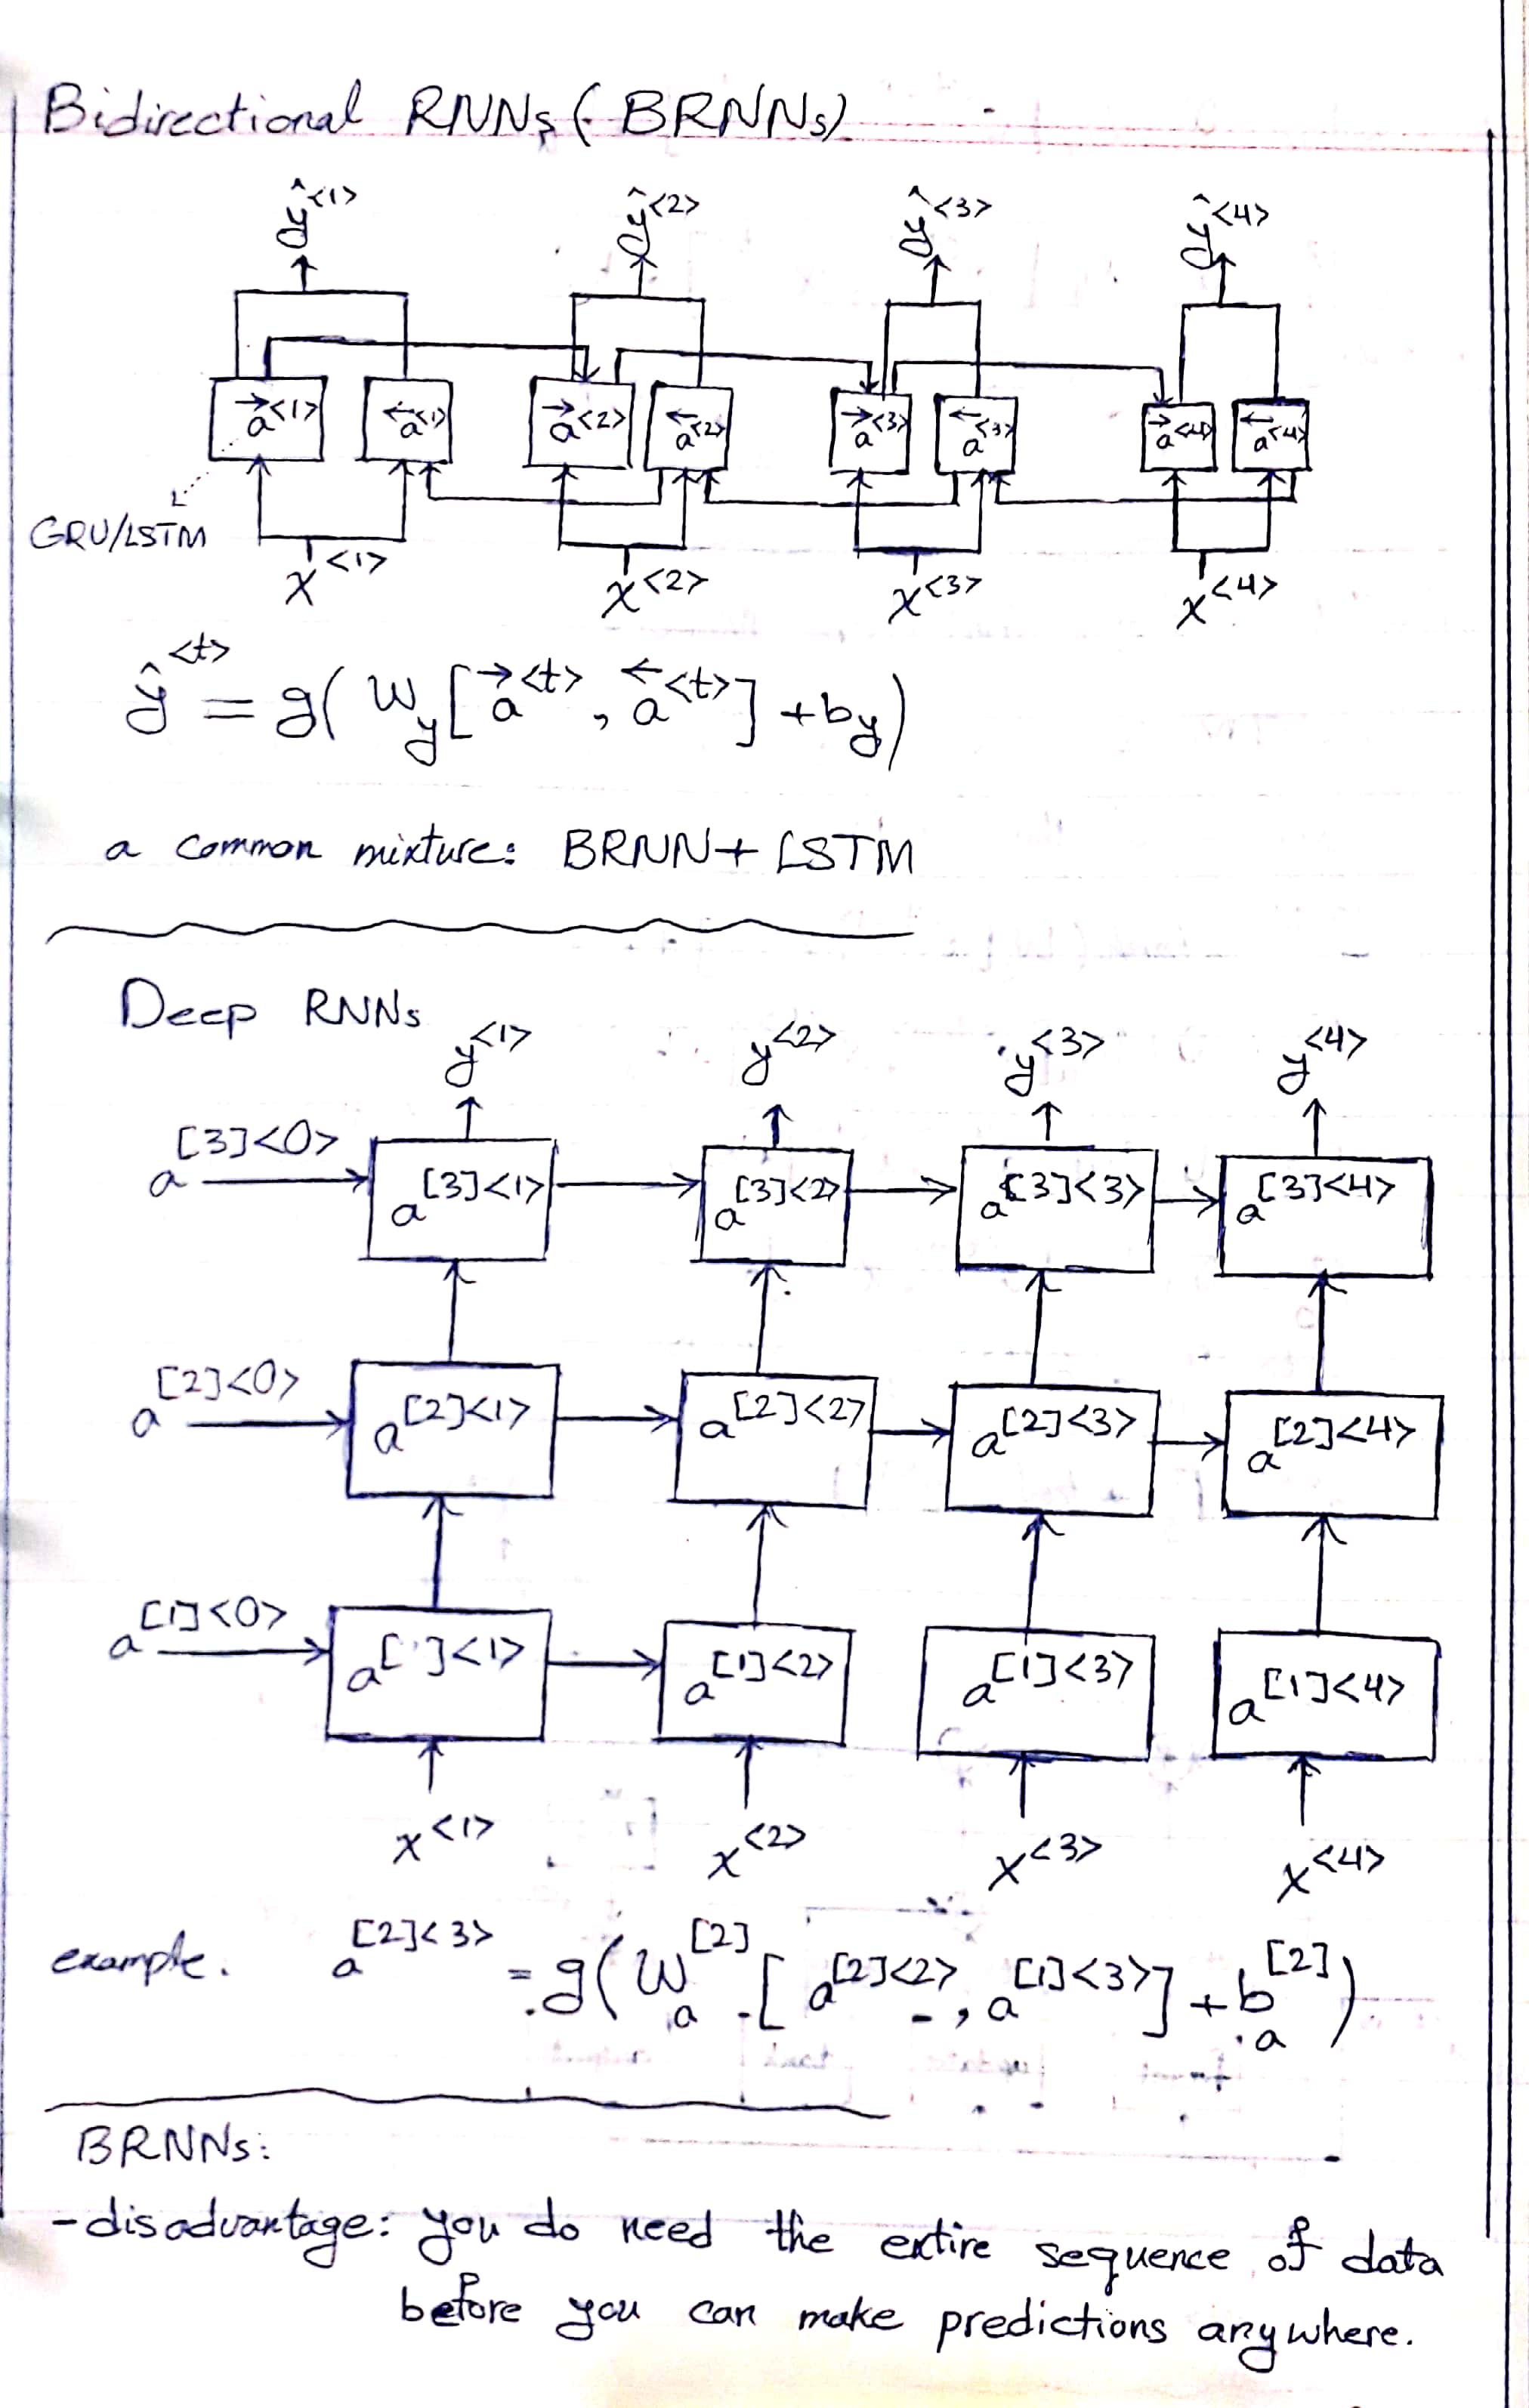 Bidirectional RNNs (BRNNs)
ŷ<1> ŷ<2> ŷ<3> ŷ<4>
→a<1> ←a<1> →a<2> ←a<2> →a<3> ←a<3> →a<4> ←a<4>
GRU/LSTM
x<1> x<2> x<3> x<4>
ŷ<t> = g( Wy [ →a<t> , ←a<t> ] + by )
a common mixture: BRNN + LSTM
Deep RNNs
y<1> y<2> y<3> y<4>
a[3]<0> a[3]<1> a[3]<2> a[3]<3> a[3]<4>
a[2]<0> a[2]<1> a[2]<2> a[2]<3> a[2]<4>
a[1]<0> a[1]<1> a[1]<2> a[1]<3> a[1]<4>
x<1> x<2> x<3> x<4>
example. a[2]<3> = g( Wa[2] . [ a[2]<2> , a[1]<3> ] + ba[2] )
BRNNs:
- disadvantage: you do need the entire sequence of data
before you can make predictions anywhere.